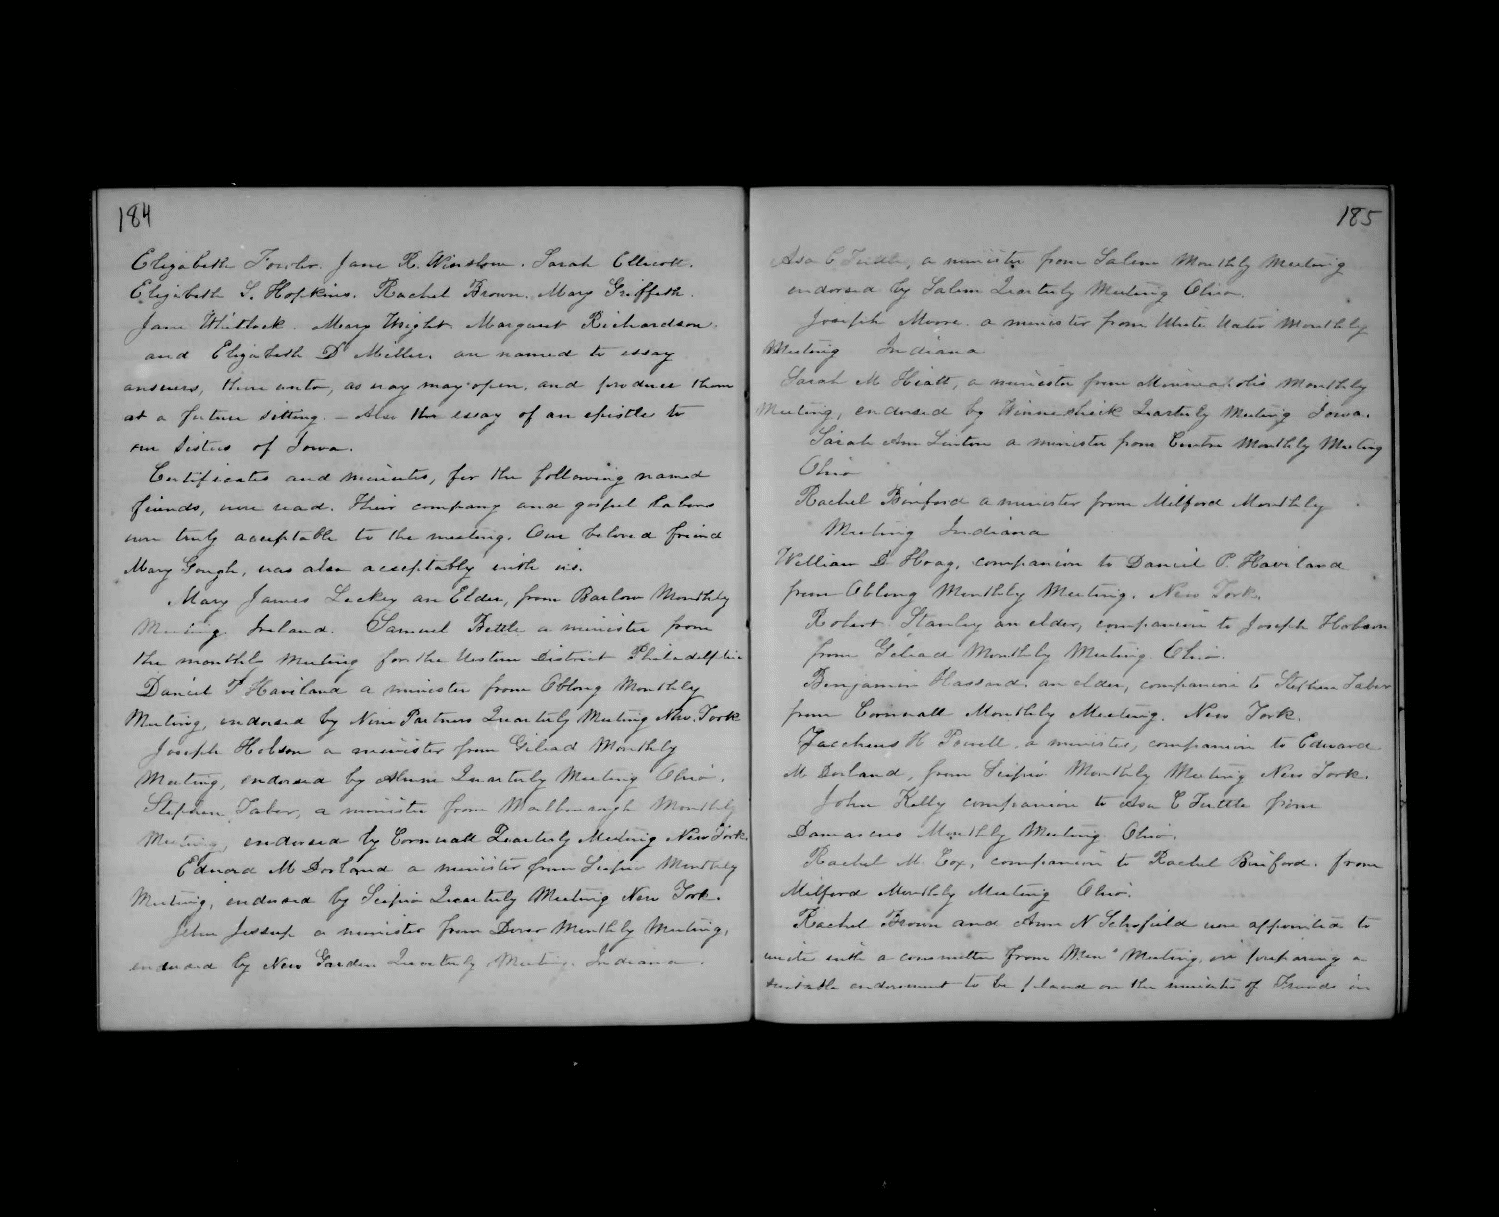 184
Elizabeth Fowler. Jane R. Winslow. Sarah Ellicott.
Elizabeth S. Hopkins. Rachel Brown. Mary Griffeth.
Jane Whitlock. Mary Wright. Margaret Richardson.
and Elizabeth D Miller. are named to essay
answers, there unto, as way may open. and produce them
at a future sitting. – Also the essay of an epistle to
our sisters of Iowa.
Certificates and minutes, for the following named
friends, were read. Their company and gospel labors
were truly acceptable to the meeting. Our beloved friend
Mary Gough, was also acceptably with us.
Mary James Leckey an Elder, from Barlow Monthly
Meeting Ireland. Samuel Bettle a minister from
the monthly meeting for the Western District Philadelphia
Daniel P Haviland a minister from Oblong Monthly
Meeting, endorsed by Nine Partners Quarterly Meeting New York
Joseph Hobson a minister from Gilead Monthly
Meeting, endorsed by Alum Quarterly Meeting Ohio.
Stephen Taber, a minister from Malborough Monthly
Meeting, endorsed by Cornwall Quarterly Meeting New York.
Edward M Dorland a minister from Scipio Monthly
Meeting, endorsed by Scipio Quarterly Meeting New York.
John Jessup a minister from Dover Monthly Meeting,
endorsed by New Garden Quarterly Meeting. Indiana.
185
Asa C. Tuttle, a minister from Salem Monthly Meeting
endorsed by Salem Quarterly Meeting Ohio.
Joseph Moore. a minister from White Water Monthly
Meeting Indiana
Sarah M Hiatt, a minister from Minneapolis Monthly
Meeting, endorsed by Winneshiek Quarterly Meeting Iowa.
Sarah Ann Linton a minister from Centre Monthly Meeting
Ohio
Rachel Binford a minister from Milford Monthly
Meeting Indiana
William D Hoag, companion to Daniel P. Haviland
from Oblong Monthly Meeting. New York.
Robert Stanley an elder, companion to Joseph Hobson
from Gilead Monthly Meeting Ohio.
Benjamin Hassard. an elder, companion to Stephen Taber
from Cornwall Monthly Meeting. New York.
Zaccheus H Powell. a minister, companion to Edward
M Dorland, from Scipio Monthly Meeting New York.
John Kelly companion to Asa C Tuttle from
Damascus Monthly Meeting Ohio.
Rachel M. Cox, companion to Rachel Binford. from
Milford Monthly Meeting Ohio.
Rachel Brown and Ann N Schofield were appointed to
unite with a committee from Men's Meeting, in preparing a
suitable endorsement to be placed on the minutes of Friends in